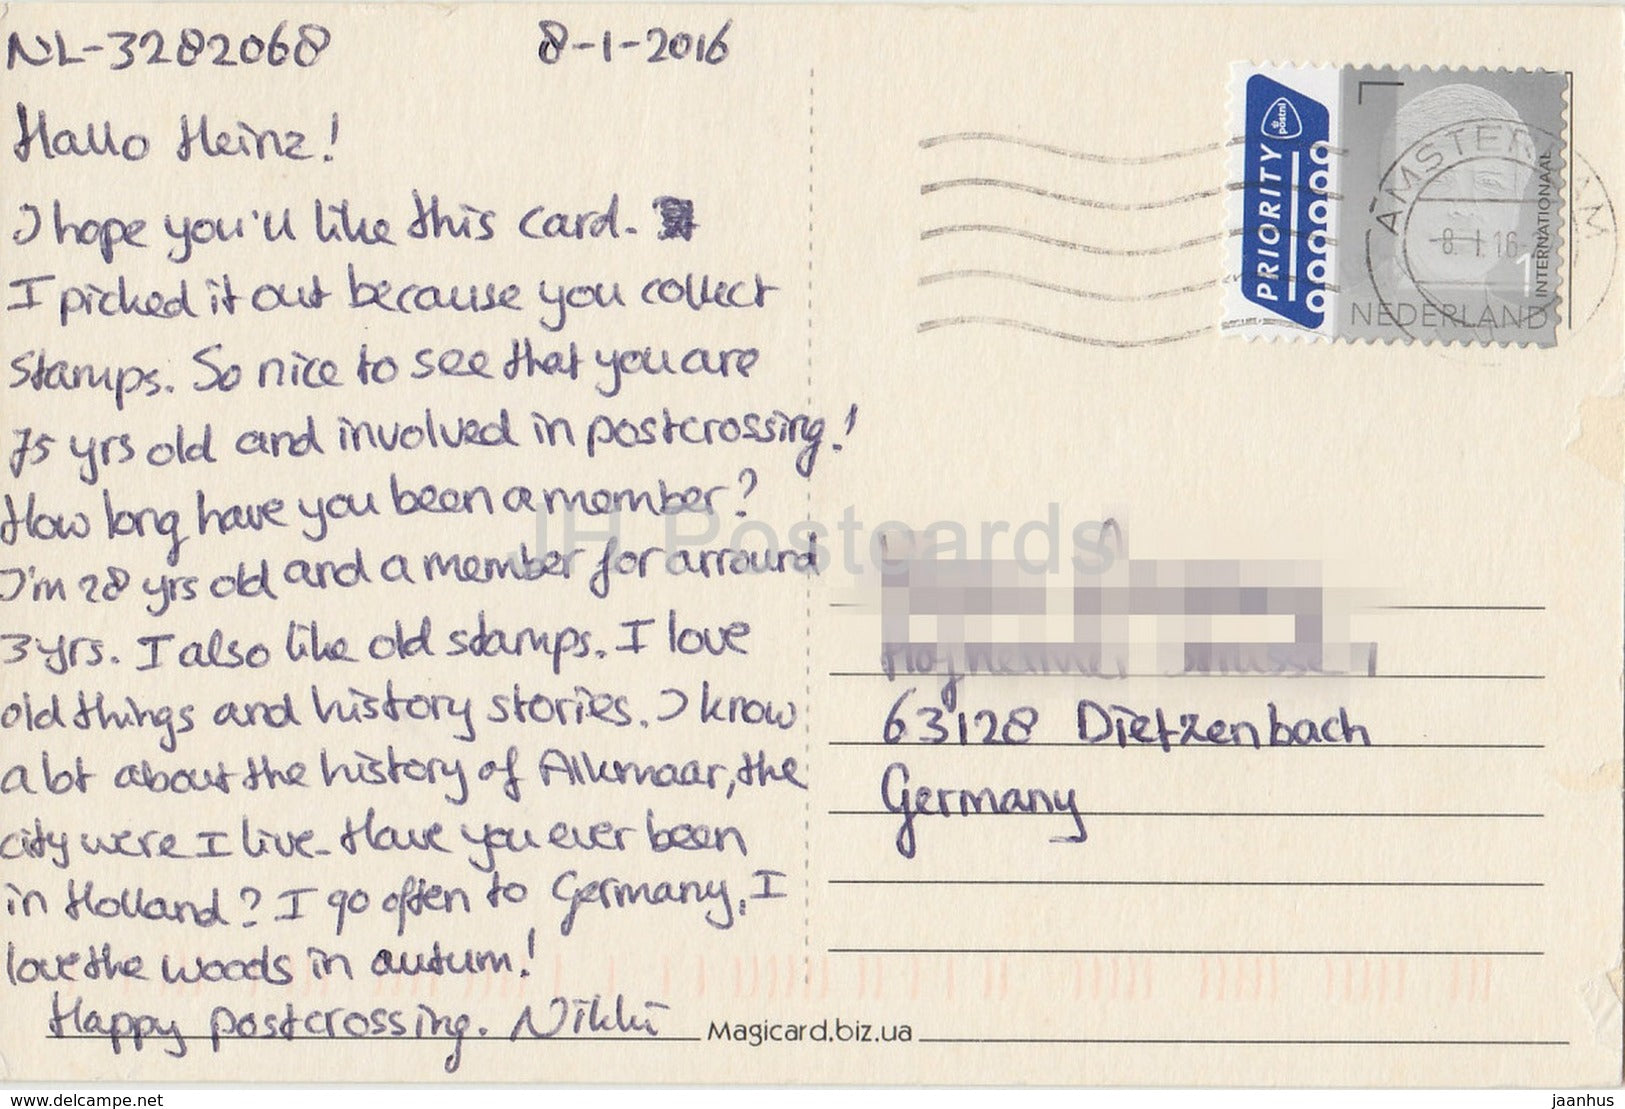 NL-3282068 8-1-2016
Hallo Heinz!
I hope you'll like this card.
I picked it out because you collect
stamps. So nice to see that you are
75 yrs old and involved in postcrossing!
How long have you been a member?
I'm 28 yrs old and a member for arround
3 yrs. I also like old stamps. I love
old things and history stories. I know
a lot about the history of Alkmaar, the
city were I live. Have you ever been
in Holland? I go often to Germany, I
love the woods in autum!
Happy postcrossing. Nikki
Magicard.biz.ua
PRIORITY
postnl
1 INTERNATIONAAL
NEDERLAND
AMSTERDAM
8.1.16
JH Postcards
63128 Dietzenbach
Germany
delcampe.net
jaanhus